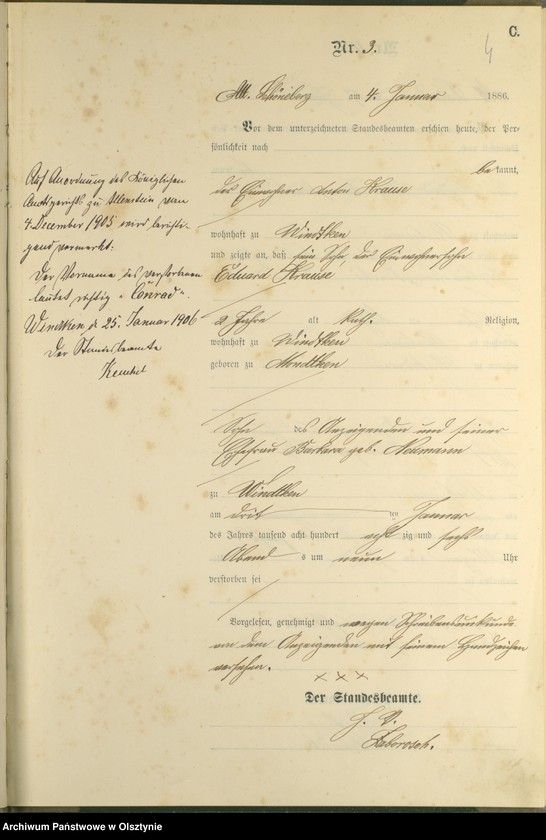 C.
4
Nr. 3.
Alt. Schöneberg am 4. Januar 1886.
Vor dem unterzeichneten Standesbeamten erschien heute, der Per-
sönlichkeit nach
bekannt,
der Einwohner Anton Krause
wohnhaft zu Windtken
und zeigte an, daß sein Sohn, der Einwohnersohn
Eduard Krause
2 Jahre alt kath. Religion,
wohnhaft zu Windtken
geboren zu Mondtken
Sohn des Anzeigenden und seiner
Ehefrau Barbara geb. Neumann
zu Windtken
am dritten Januar
des Jahres tausend acht hundert achtzig und sechs
Abends um neun Uhr
verstorben sei
Vorgelesen, genehmigt und wegen Schreibensunkunde
von dem Anzeigenden mit seinem Handzeichen
versehen.
× × ×
Der Standesbeamte.
J. V.
Auf Anordnung des Königlichen
Amtsgerichts zu Allenstein vom
4 December 1905 wird berichti-
gend vermerkt:
Der Vorname des verstorbenen
lautet richtig „Conrad“.
Windtken d 25. Januar 1906
Der Standesbeamte
Archiwum Państwowe w Olsztynie